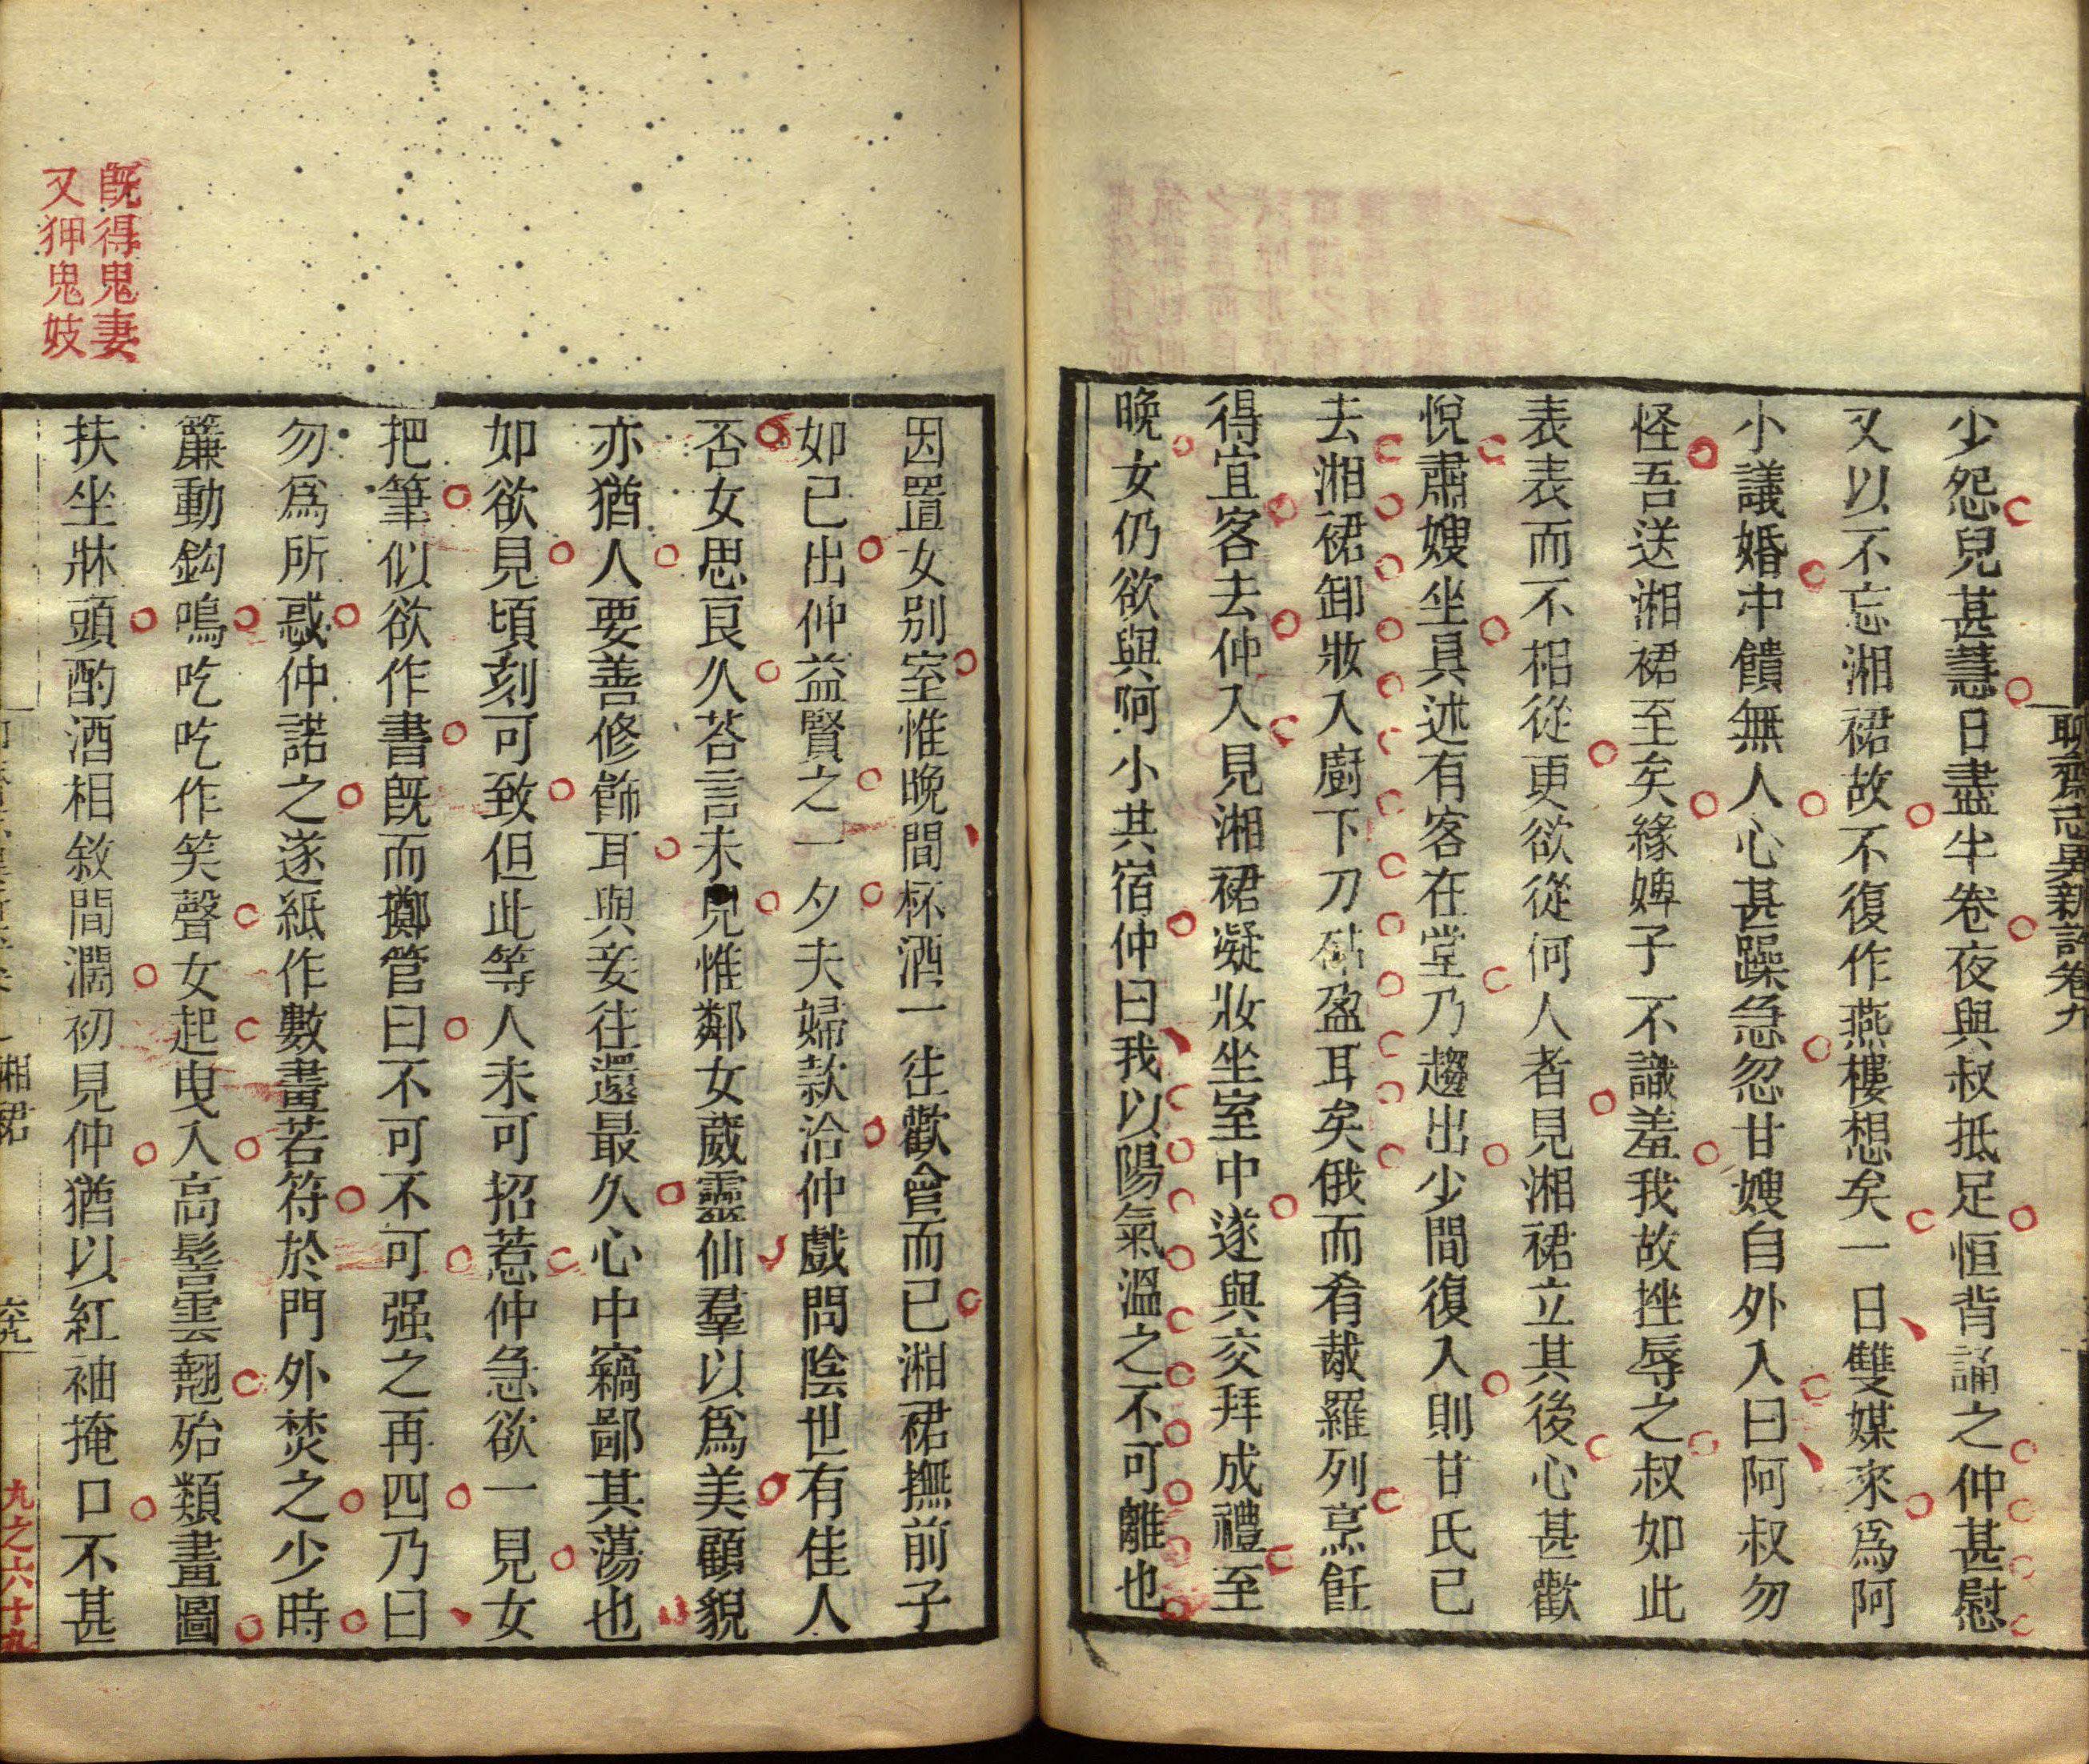 聊齋志異新評卷九
少怨兒甚慧日盡半卷夜與叔抵足恒背誦之仲甚慰
又以不忘湘裙故不復作燕樓想矣一日雙媒來爲阿
小議婚中饋無人心甚躁急忽甘嫂自外入曰阿叔勿
怪吾送湘裙至矣緣婢子不識羞我故挫辱之叔如此
表表而不相從更欲從何人者見湘裙立其後心甚歡
悅肅嫂坐具述有客在堂乃趨出少間復入則甘氏已
去湘裙卸妝入廚下刀砧盈耳矣俄而肴胾羅列烹飪
得宜客去仲入見湘裙凝妝坐室中遂與交拜成禮至
晚女仍欲與阿小共宿仲曰我以陽氣溫之不可離也
既得鬼妻
又狎鬼妓
因置女别室惟晚間杯酒一往歡會而已湘裙撫前子
如己出仲益賢之一夕夫婦款洽仲戲問陰世有佳人
否女思良久荅言未見惟鄰女葳靈仙羣以爲美顧貌
亦猶人要善修飾耳與妾往還最久心中竊鄙其蕩也
如欲見頃刻可致但此等人未可招惹仲急欲一見女
把筆似欲作書既而擲管曰不可不可强之再四乃曰
勿爲所惑仲諾之遂紙作數畫若符於門外焚之少時
簾動鈎鳴吃吃作笑聲女起曳入高髻雲翹殆類畫圖
扶坐牀頭酌酒相敘間濶初見仲猶以紅袖掩口不甚
湘裙
九之六十九